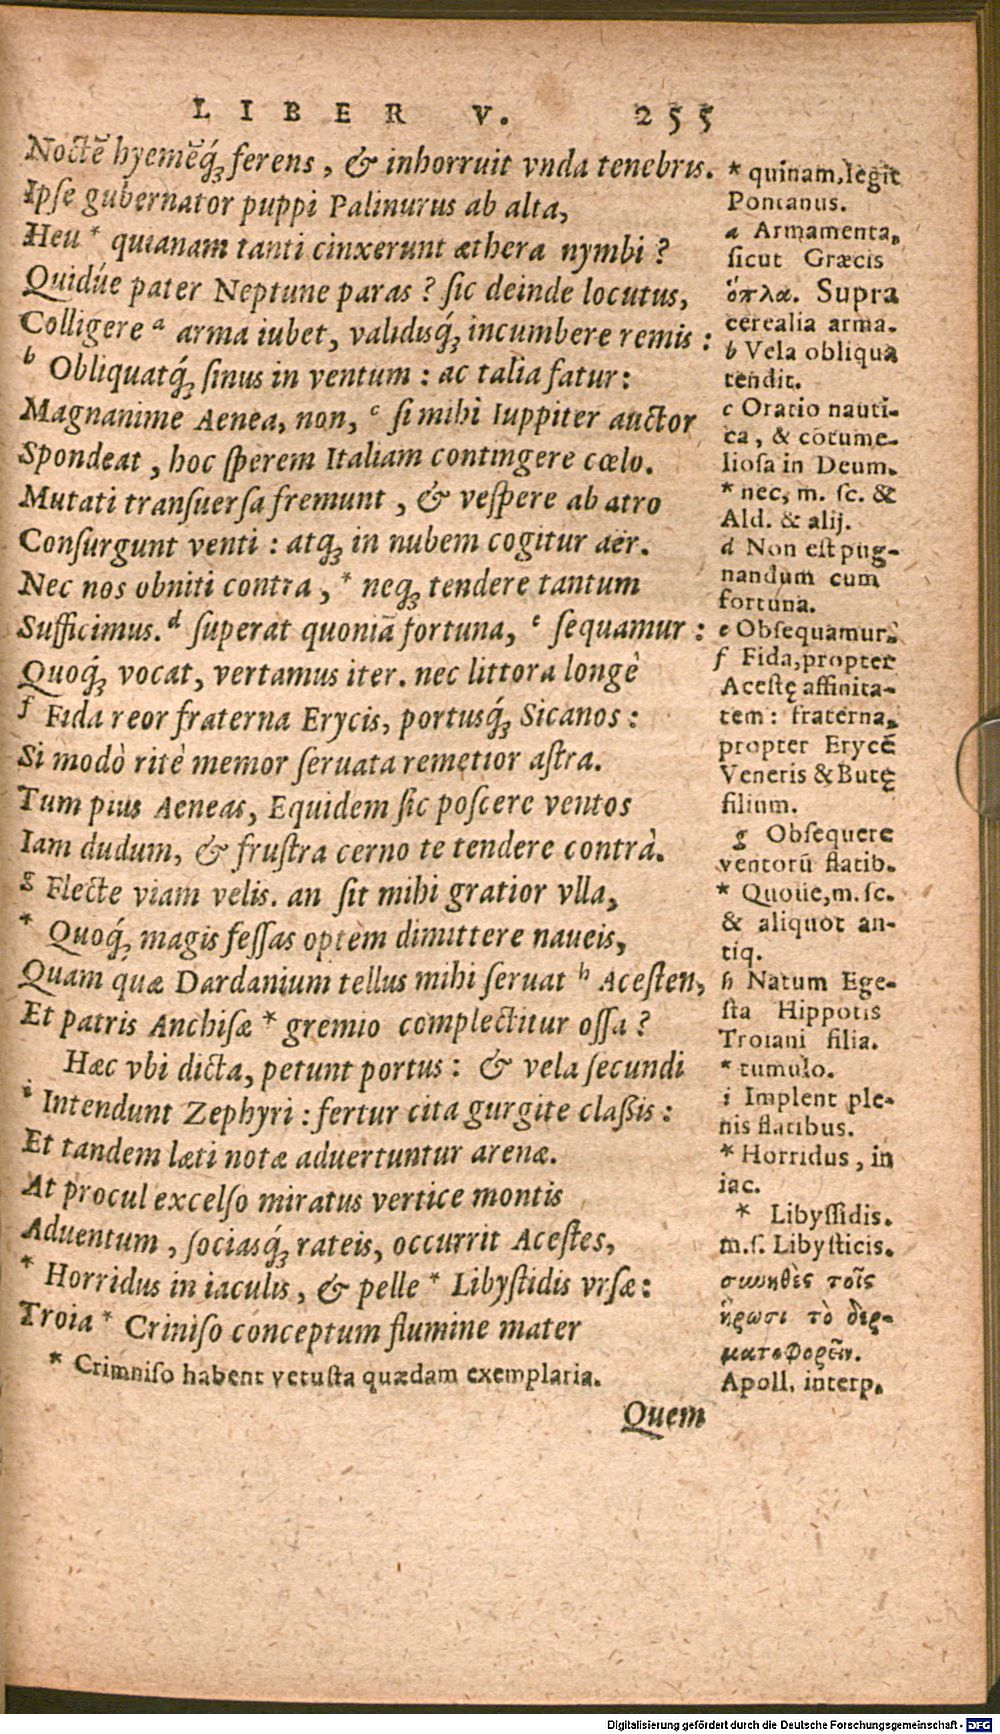 LIBER V. 255
Noctē hyemēq́; ferens, & inhorruit vnda tenebris.
Ipſe gubernator puppi Palinurus ab alta,
Heu * quianam tanti cinxerunt æthera nymbi?
Quidúe pater Neptune paras? ſic deinde locutus,
Colligere a arma iubet, validisq́; incumbere remis:
b Obliquatq́; ſinus in ventum: ac talia fatur:
Magnanime Aenea, non, c ſi mihi Iuppiter auctor
Spondeat, hoc ſperem Italiam contingere cœlo.
Mutati tranſuerſa fremunt, & veſpere ab atro
Conſurgunt venti: atq; in nubem cogitur aër.
Nec nos obniti contra, * neq; tendere tantum
Sufficimus. d ſuperat quoniā fortuna, e ſequamur:
Quoq́; vocat, vertamus iter. nec littora longè
f Fida reor fraterna Erycis, portusq́; Sicanos:
Si modò ritè memor ſeruata remetior aſtra.
Tum pius Aeneas, Equidem ſic poſcere ventos
Iam dudum, & fruſtra cerno te tendere contrà.
g Flecte viam velis. an ſit mihi gratior vlla,
* Quoq́; magis feſſas optem dimittere naueis,
Quam quæ Dardanium tellus mihi ſeruat h Aceſten,
Et patris Anchiſæ * gremio complectitur oſſa?
Hæc vbi dicta, petunt portus: & vela ſecundi
i Intendunt Zephyri: fertur cita gurgite claſſis:
Et tandem læti notæ aduertuntur arenæ.
At procul excelſo miratus vertice montis
Aduentum, ſociasq́; rateis, occurrit Aceſtes,
* Horridus in iaculis, & pelle * Libyſtidis vrſæ:
Troia * Criniſo conceptum flumine mater
* Crimniſo habent vetuſta quædam exemplaria.
Quem
* quinam, legit
Pontanus.
a Armamenta,
ſicut Græcis
ὅπλα. Supra
cerealia arma.
b Vela obliqua
tendit.
c Oratio nauti-
ca, & cōtume-
lioſa in Deum.
* nec, m. ſc. &
Ald. & alij.
d Non eſt pug-
nandum cum
fortuna.
e Obſequamur.
f Fida, propter
Aceſtę affinita-
tem: fraterna,
propter Erycē
Veneris & Butę
filium.
g Obſequere
ventorū flatib.
* Quoue, m. ſc.
& aliquot an-
tiq.
h Natum Ege-
ſta Hippotis
Troiani filia.
* tumulo.
i Implent ple-
nis flatibus.
* Horridus, in
iac.
* Libyſſidis.
m. ſ. Libyſticis.
συνηθὲς τοῖς
ἥρωσι τὸ δερ-
ματοφορεῖν.
Apoll. interp.
Digitalisierung gefördert durch die Deutsche Forschungsgemeinschaft - DFG